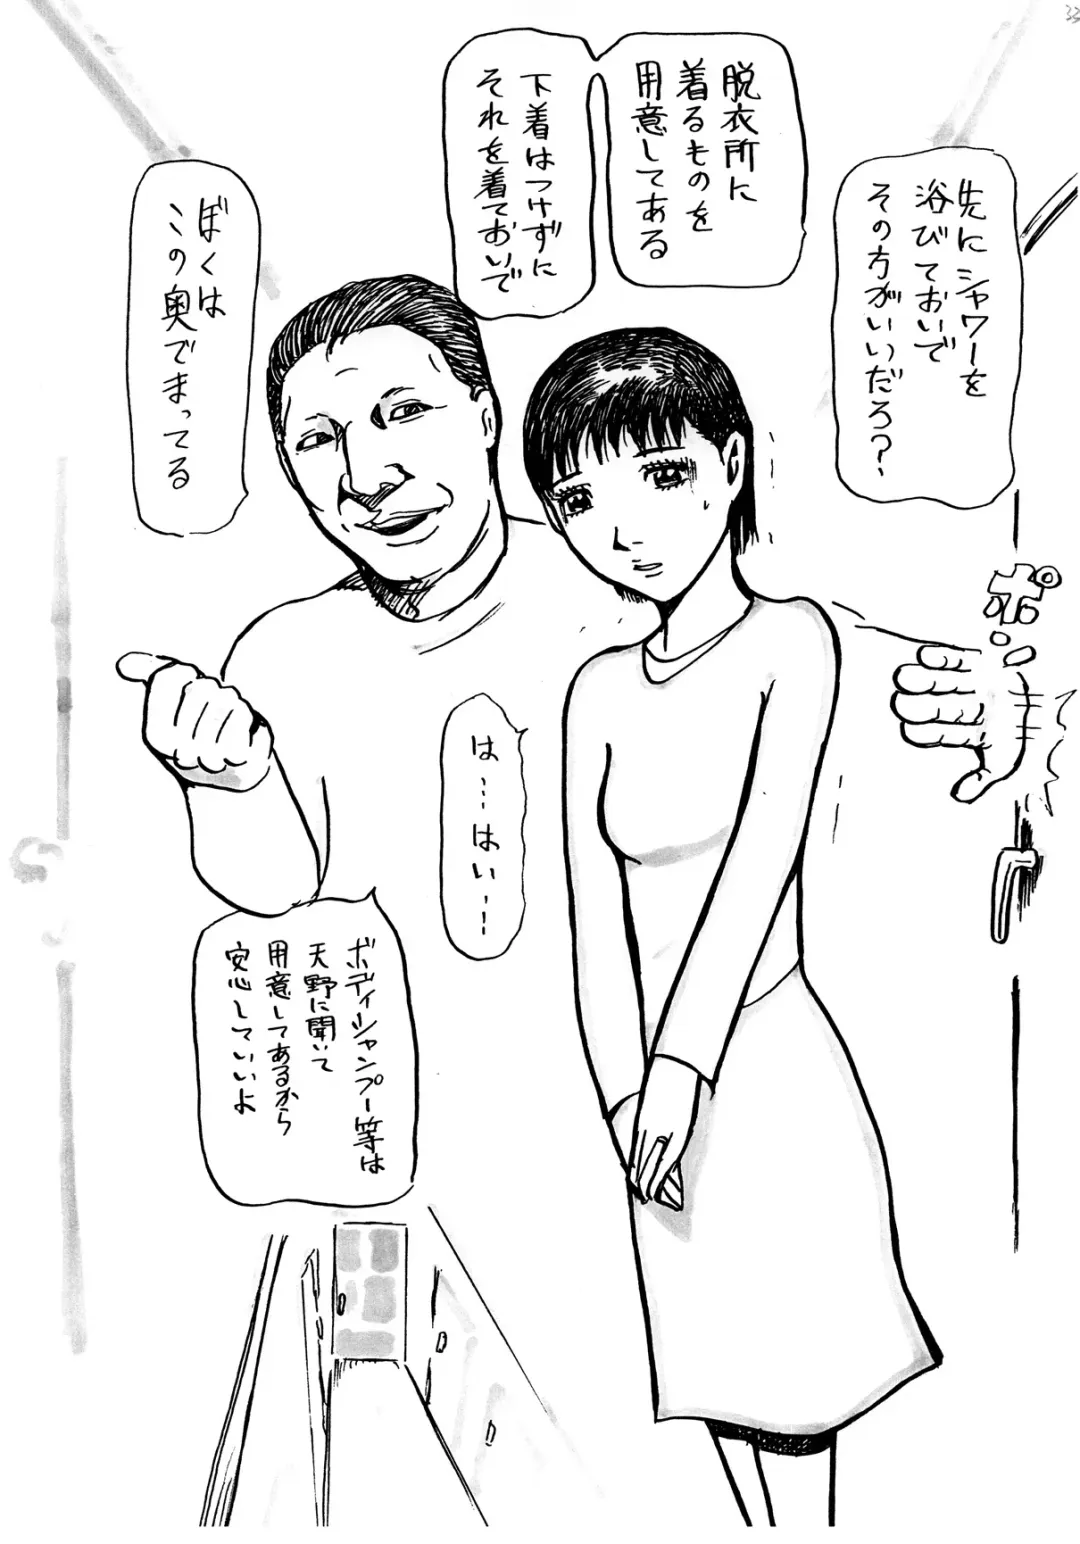 33
先にシャワーを
浴びておいで
その方がいいだろ?
脱衣所に
着るものを
用意してある
下着はつけずに
それを着ておいで
ぼくは
この奥でまってる
ポン
は…はい…!
ボディシャンプー等は
天野に聞いて
用意してあるから
安心していいよ